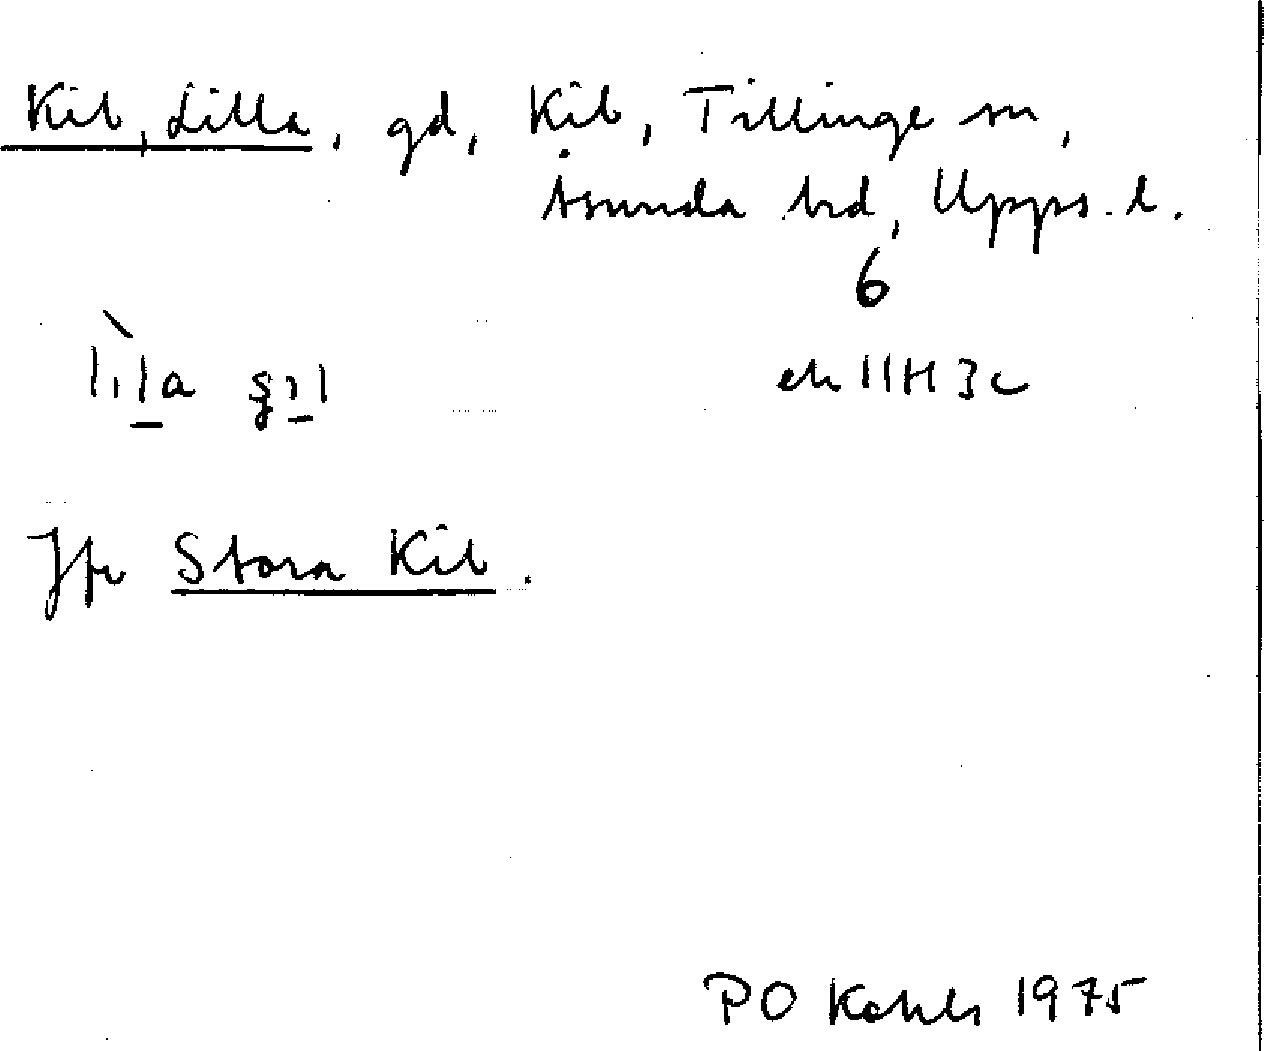 Kil, Lilla, gd, Kil, Tillinge sn,
Åsunda hd, Upps. l.
6
ek 11H 3c
Jfr Stora Kil.
PO 1975